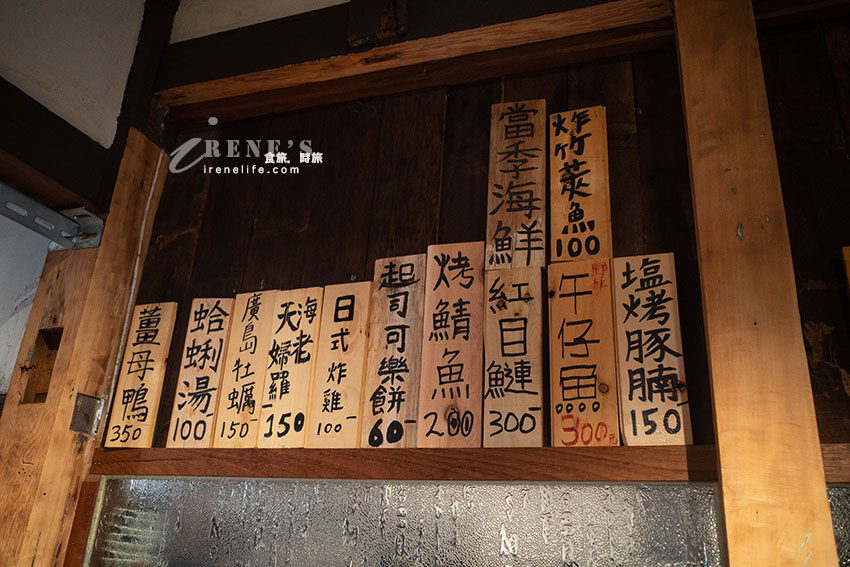 iRENE'S
食旅。時旅
irenelife.com
薑母鴨
350
蛤蜊湯
100
廣島牡蠣
150
海老天婦羅
150
日式炸雞
100
起司可樂餅
60
烤鯖魚
200
當季海鮮
紅目鰱
300
炸竹莢魚
100
午仔魚
300元
塩烤豚腩
150